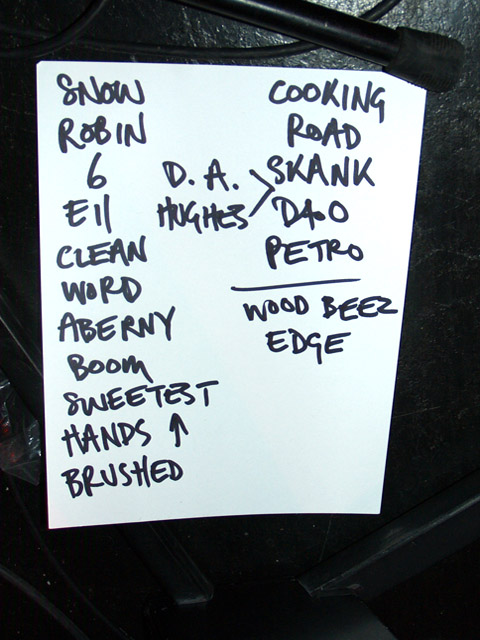 SNOW
ROBIN
6
E11
CLEAN
WORD
ABERNY
BOOM
SWEETEST
HANDS ↑
BRUSHED
COOKING
ROAD
D. A. > SKANK
HUGHES DAOO
PETRO
WOOD BEEZ
EDGE